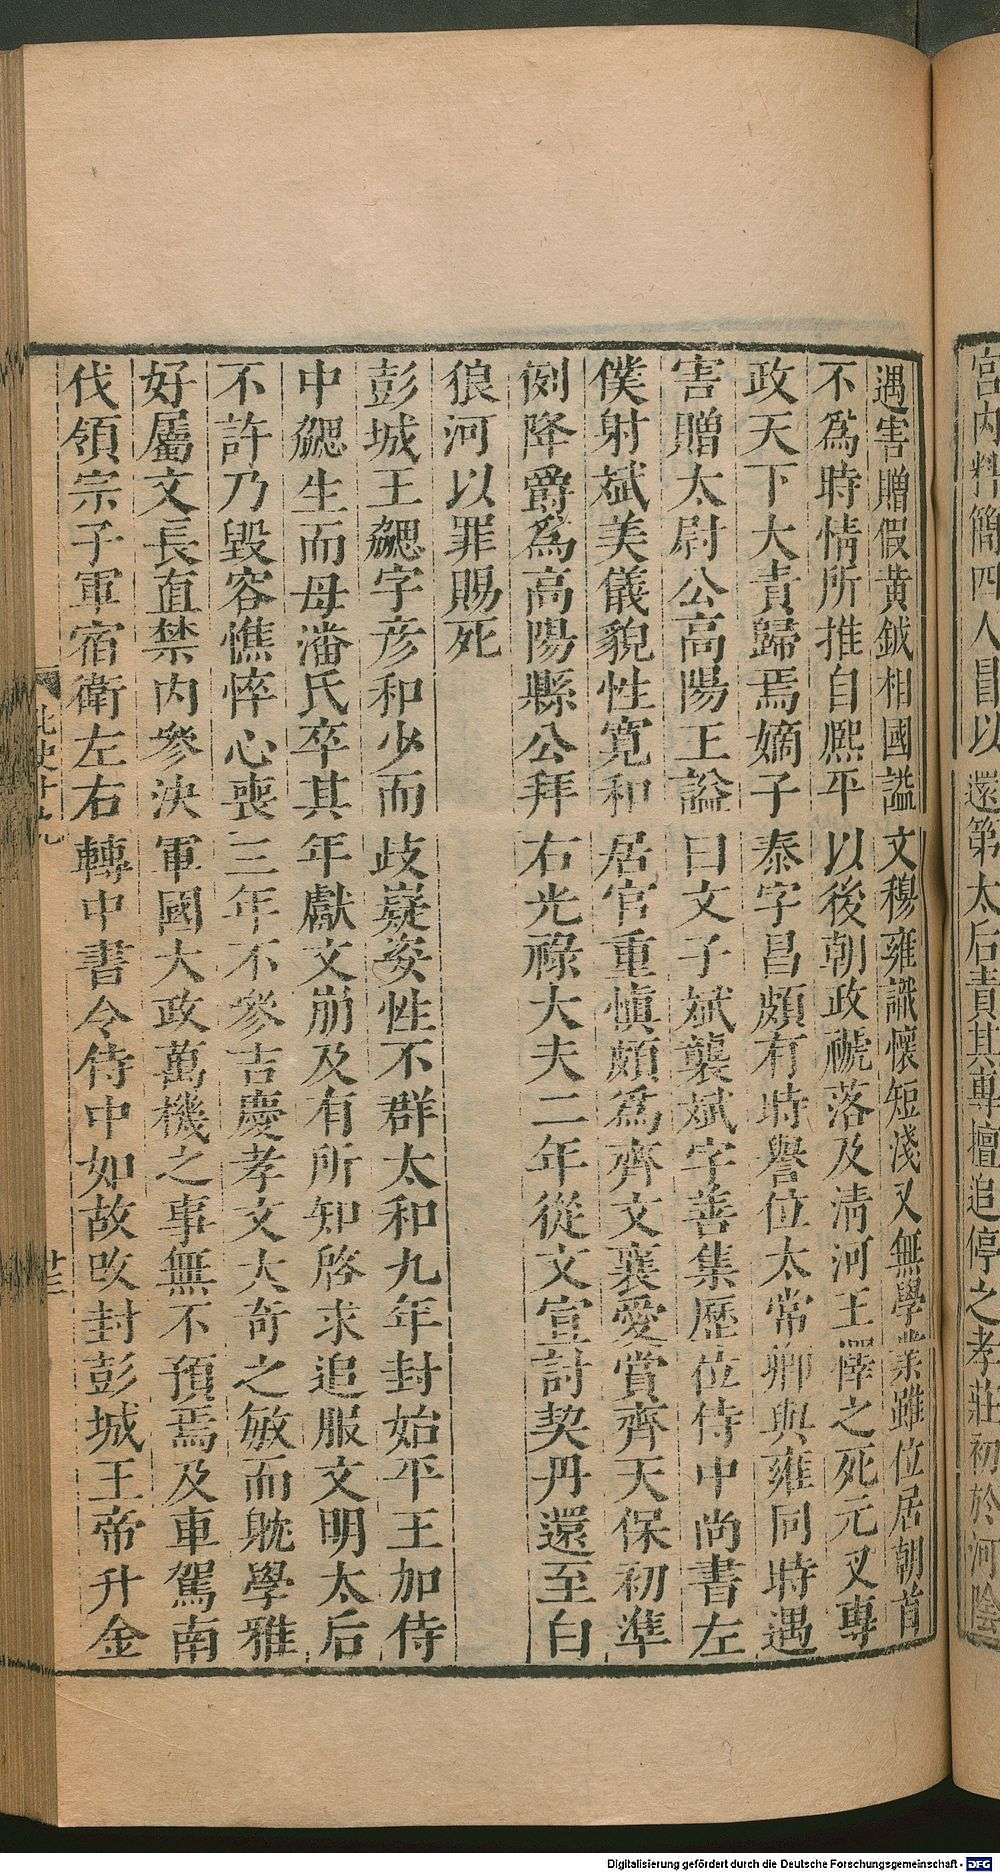 宮內料簡四人冒以還第太后責其專擅追停之孝莊初於河陰
遇害贈假黃鉞相國謚文穆雍識懷短淺又無學業雖位居朝首
不爲時情所推自熙平以後朝政禠落及淸河王懌之死元叉專
政天下大責歸焉嫡子泰字昌頗有時譽位太常卿與雍同時遇
害贈太尉公高陽王謚曰文子斌襲斌字善集歷位侍中尚書左
僕射斌美儀貌性寬和居官重愼頗爲齊文襄愛賞齊天保初準
例降爵爲高陽縣公拜右光祿大夫二年從文宣討契丹還至白
狼河以罪賜死
彭城王勰字彦和少而歧嶷姿性不群太和九年封始平王加侍
中勰生而母潘氏卒其年獻文崩及有所知啓求追服文明太后
不許乃毀容憔悴心喪三年不參吉慶孝文大奇之敏而耽學雅
好屬文長直禁內參決軍國大政萬機之事無不預焉及車駕南
伐領宗子軍宿衛左右轉中書令侍中如故改封彭城王帝升金
北史十九
廿三
Digitalisierung gefördert durch die Deutsche Forschungsgemeinschaft - DFG